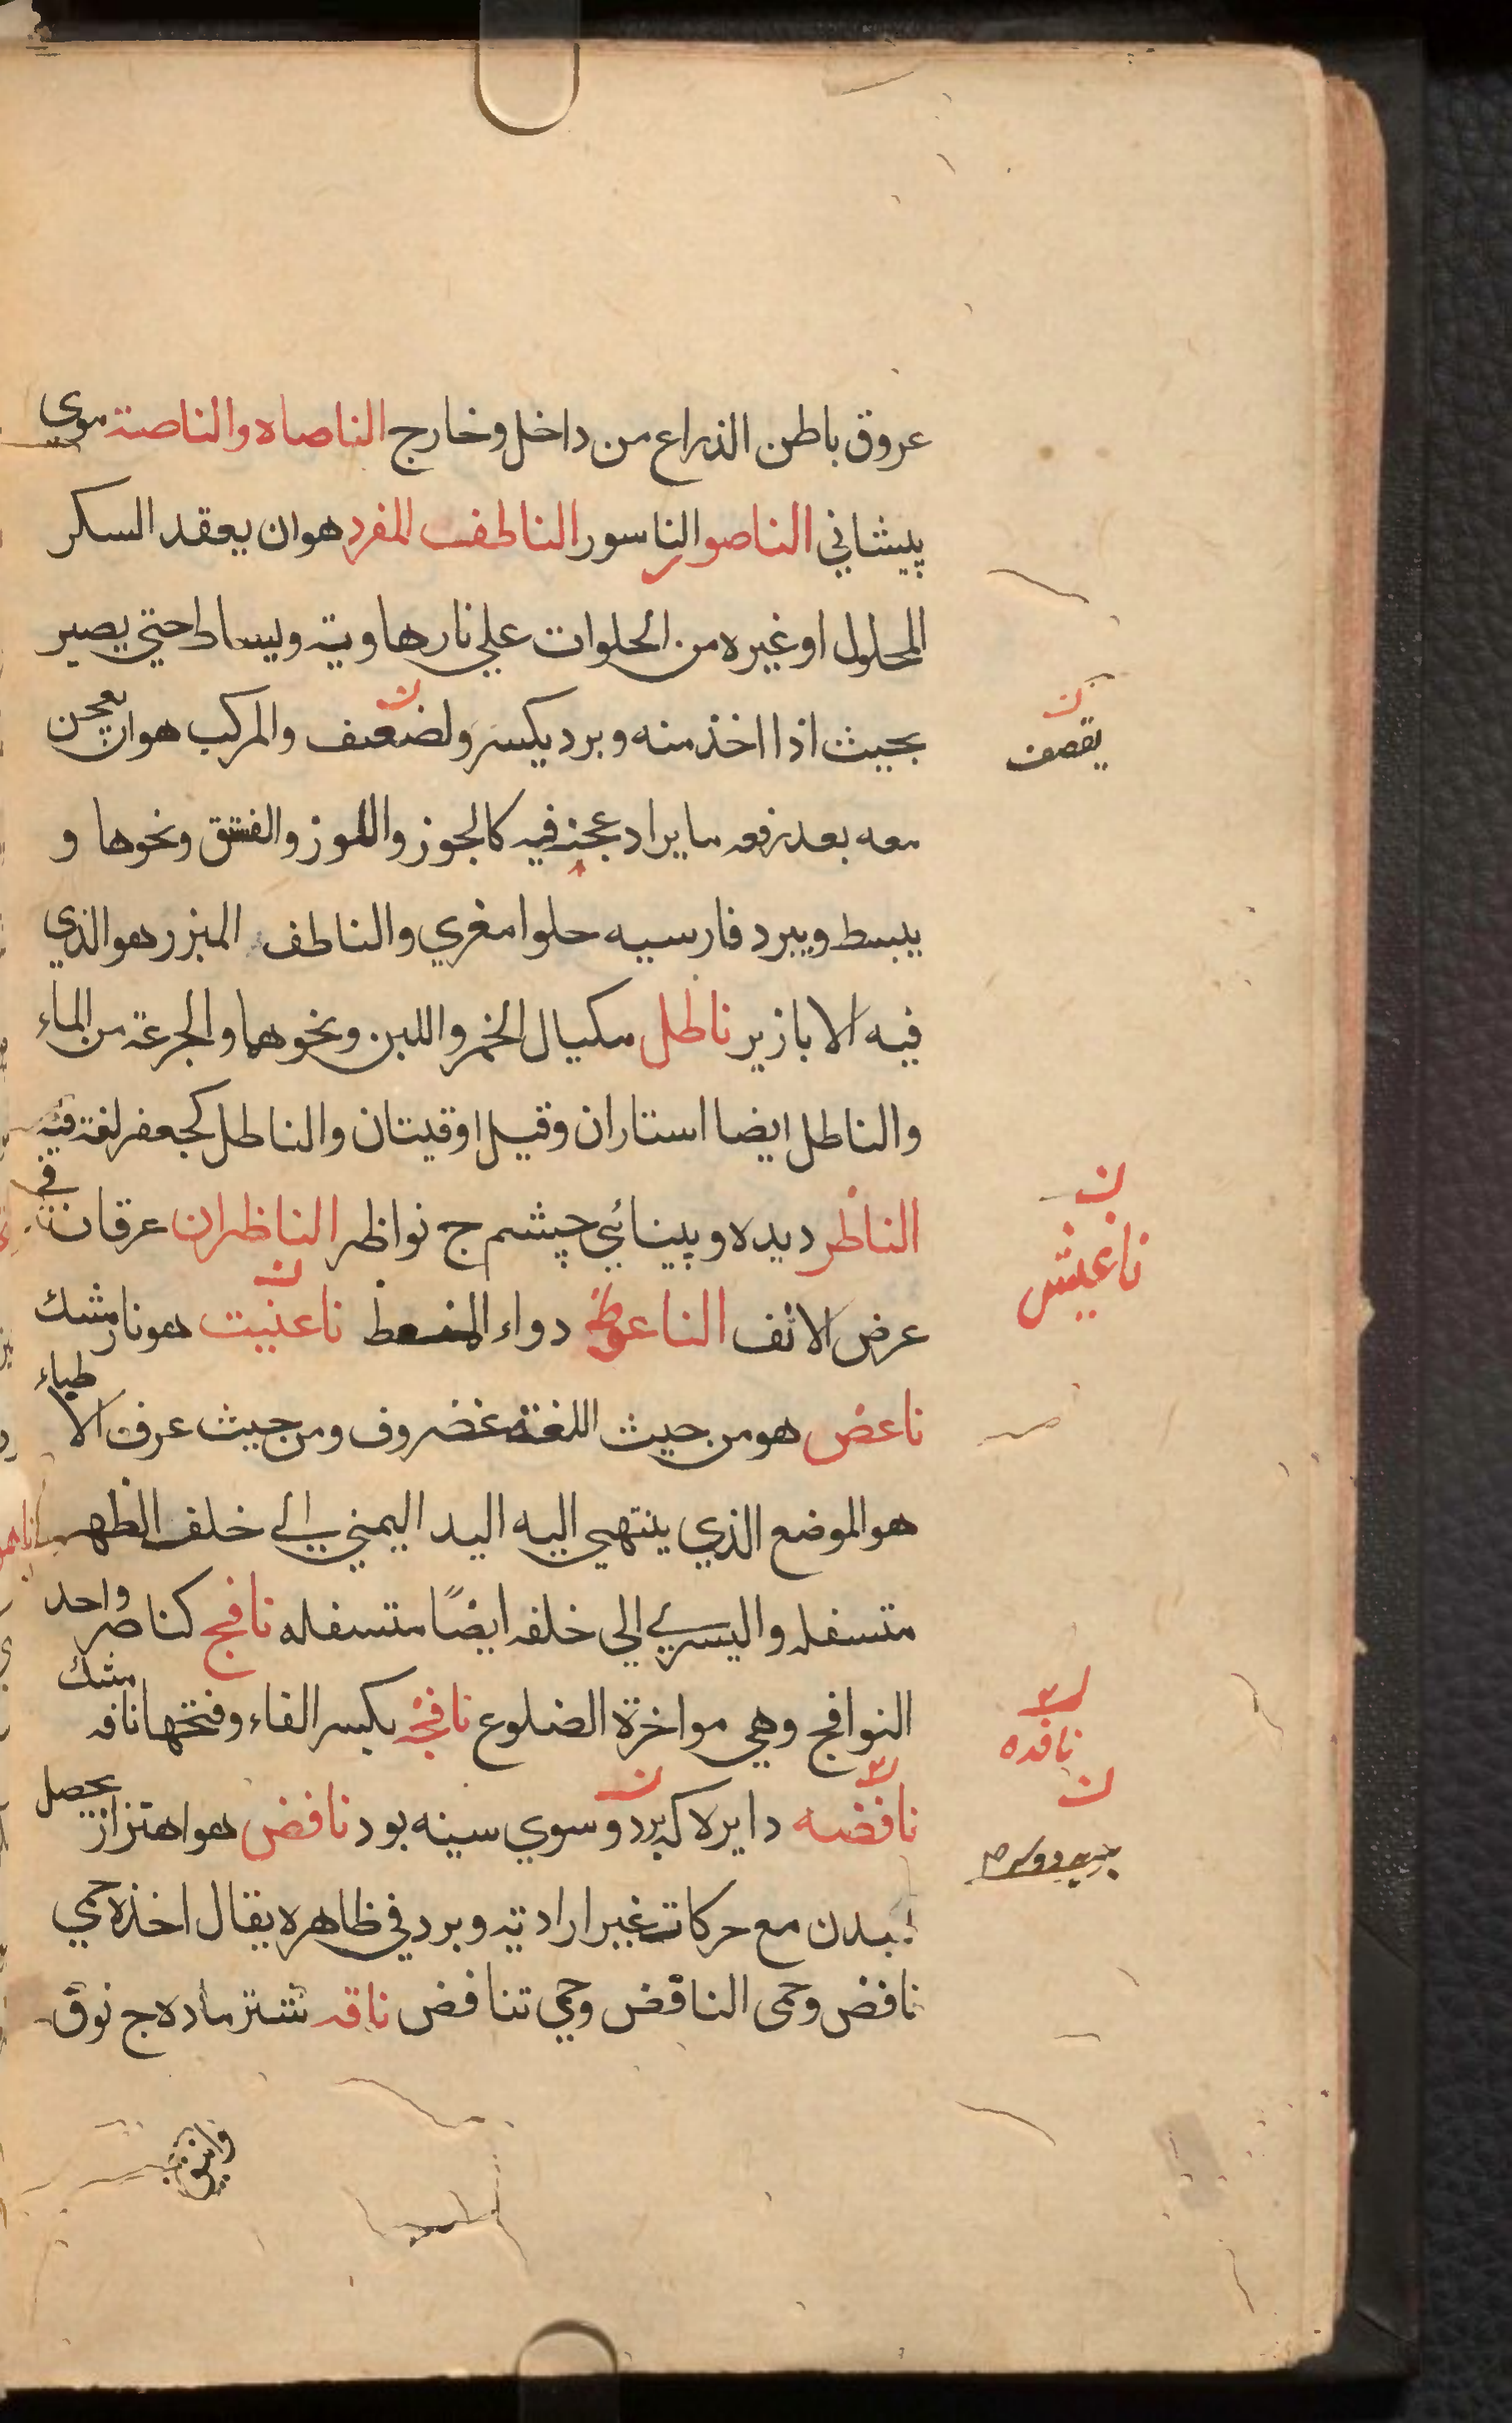 عروق باطن الذراع من داخل وخارج الناصاه والناصية موي
پيشاني الناصور الناسور الناطف المفرد هوان يعقد السكر
المحلول اوغيره من الحلوات علي نارهاوية ويساط حتي يصير
بحيث اذا اخذ منه وبرد يكسر ولضعيف والمركب هوان يعجن
معه بعد رفعه مايراد عجنه فيه كالجوز واللوز والفستق ونحوها و
يبسط ويبرد فارسيه حلوا مغزي والناطف المبزر هوالذي
فيه الابازير ناطل مكيال الخمر واللبن ونحوهما والجرعة من الماء
والناطل ايضا استاران وقيل اوقيتان والناطل كجعفر لغة فيه
الناظر ديده وبينائي چشم ج نواظر الناظران عرقان في
عرض الانف الناعوظ دواء المنعظ ناعنيت هونارمشك
ناعض هومن حيث اللغة غضروف ومن حيث عرف الاطباء
هوالموضع الذي ينتهي اليه اليد اليمني الي خلف الظهر
متسفله واليسري الي خلفه ايضًا متسفله نافج كناصر واحد
النوافج وهي مواخرة الضلوع نافجه بكسر الفاء وفتحها نافه مشك
نافضه دايره كه بردوسوي سينه بود نافض هواهتزاز يحصل
لبدن مع حركات غير ارادية وبرد في ظاهره يقال اخذه حمي
نافض وحمى النافض وحمي تنافض ناقه شتر ماده ج نوق
يقصف
ناغيش
نافده
وانيق